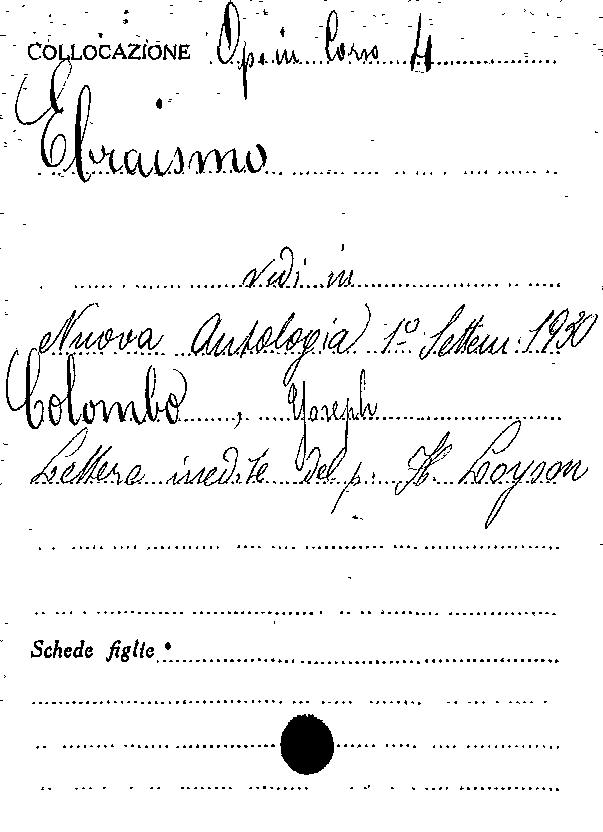 COLLOCAZIONE Op. in Corso 4
Ebraismo
vedi in
Nuova Antologia 1º Settem. 1930
Colombo, Yoseph
Lettere inedite del p. H. Loyson
Schede figlie